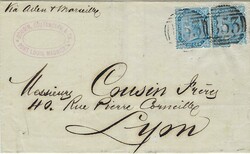 Via Aden & Marseille
B53 B53
Messieurs Cousin Frères
40. Rue Pierre Corneille
Lyon